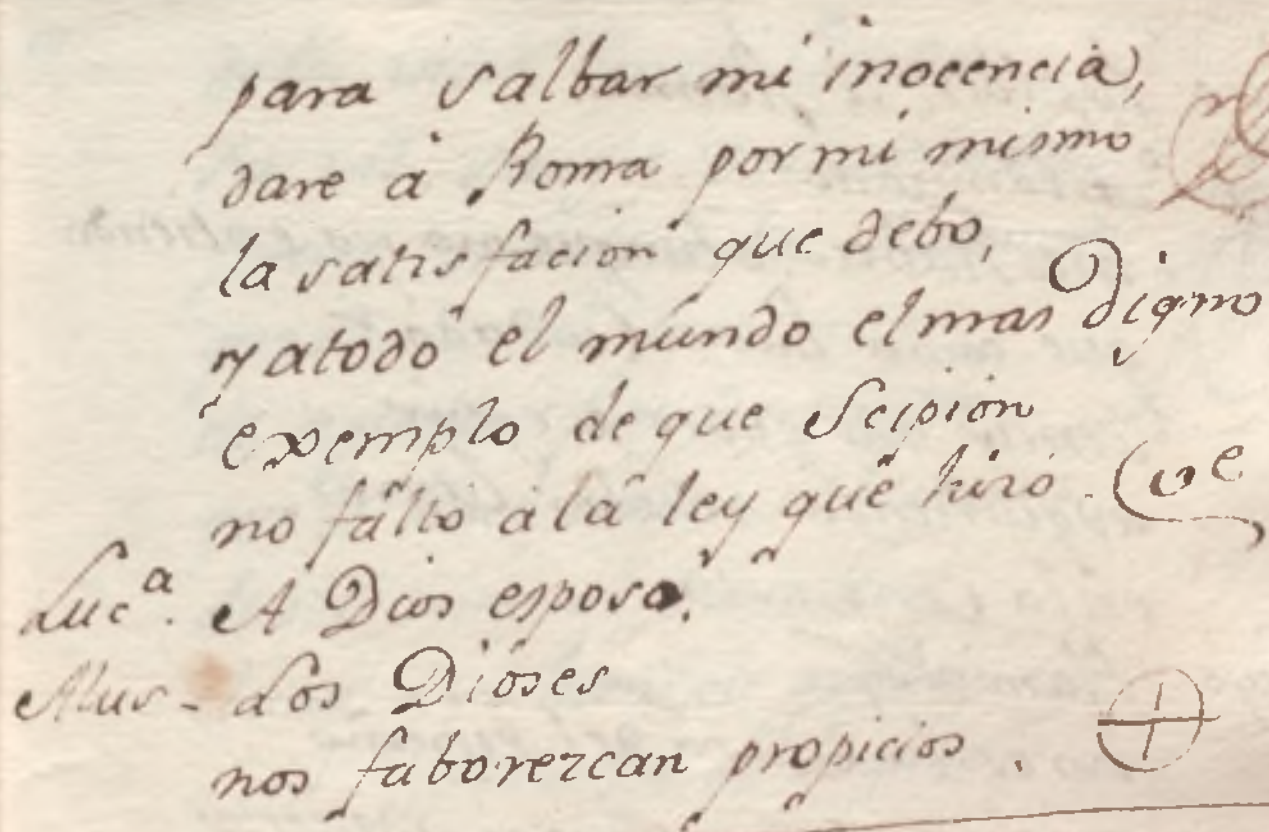 para salbar mi inocencia,
dare à Roma por mi mismo
la satisfacion que debo,
y atodo el mundo el mas digno
exemplo de que Scipion
no faltò a la ley que hizo. (ve
Luc.ª A Dios esposo.
Mus - Los Dioses
nos faborezcan propicios.